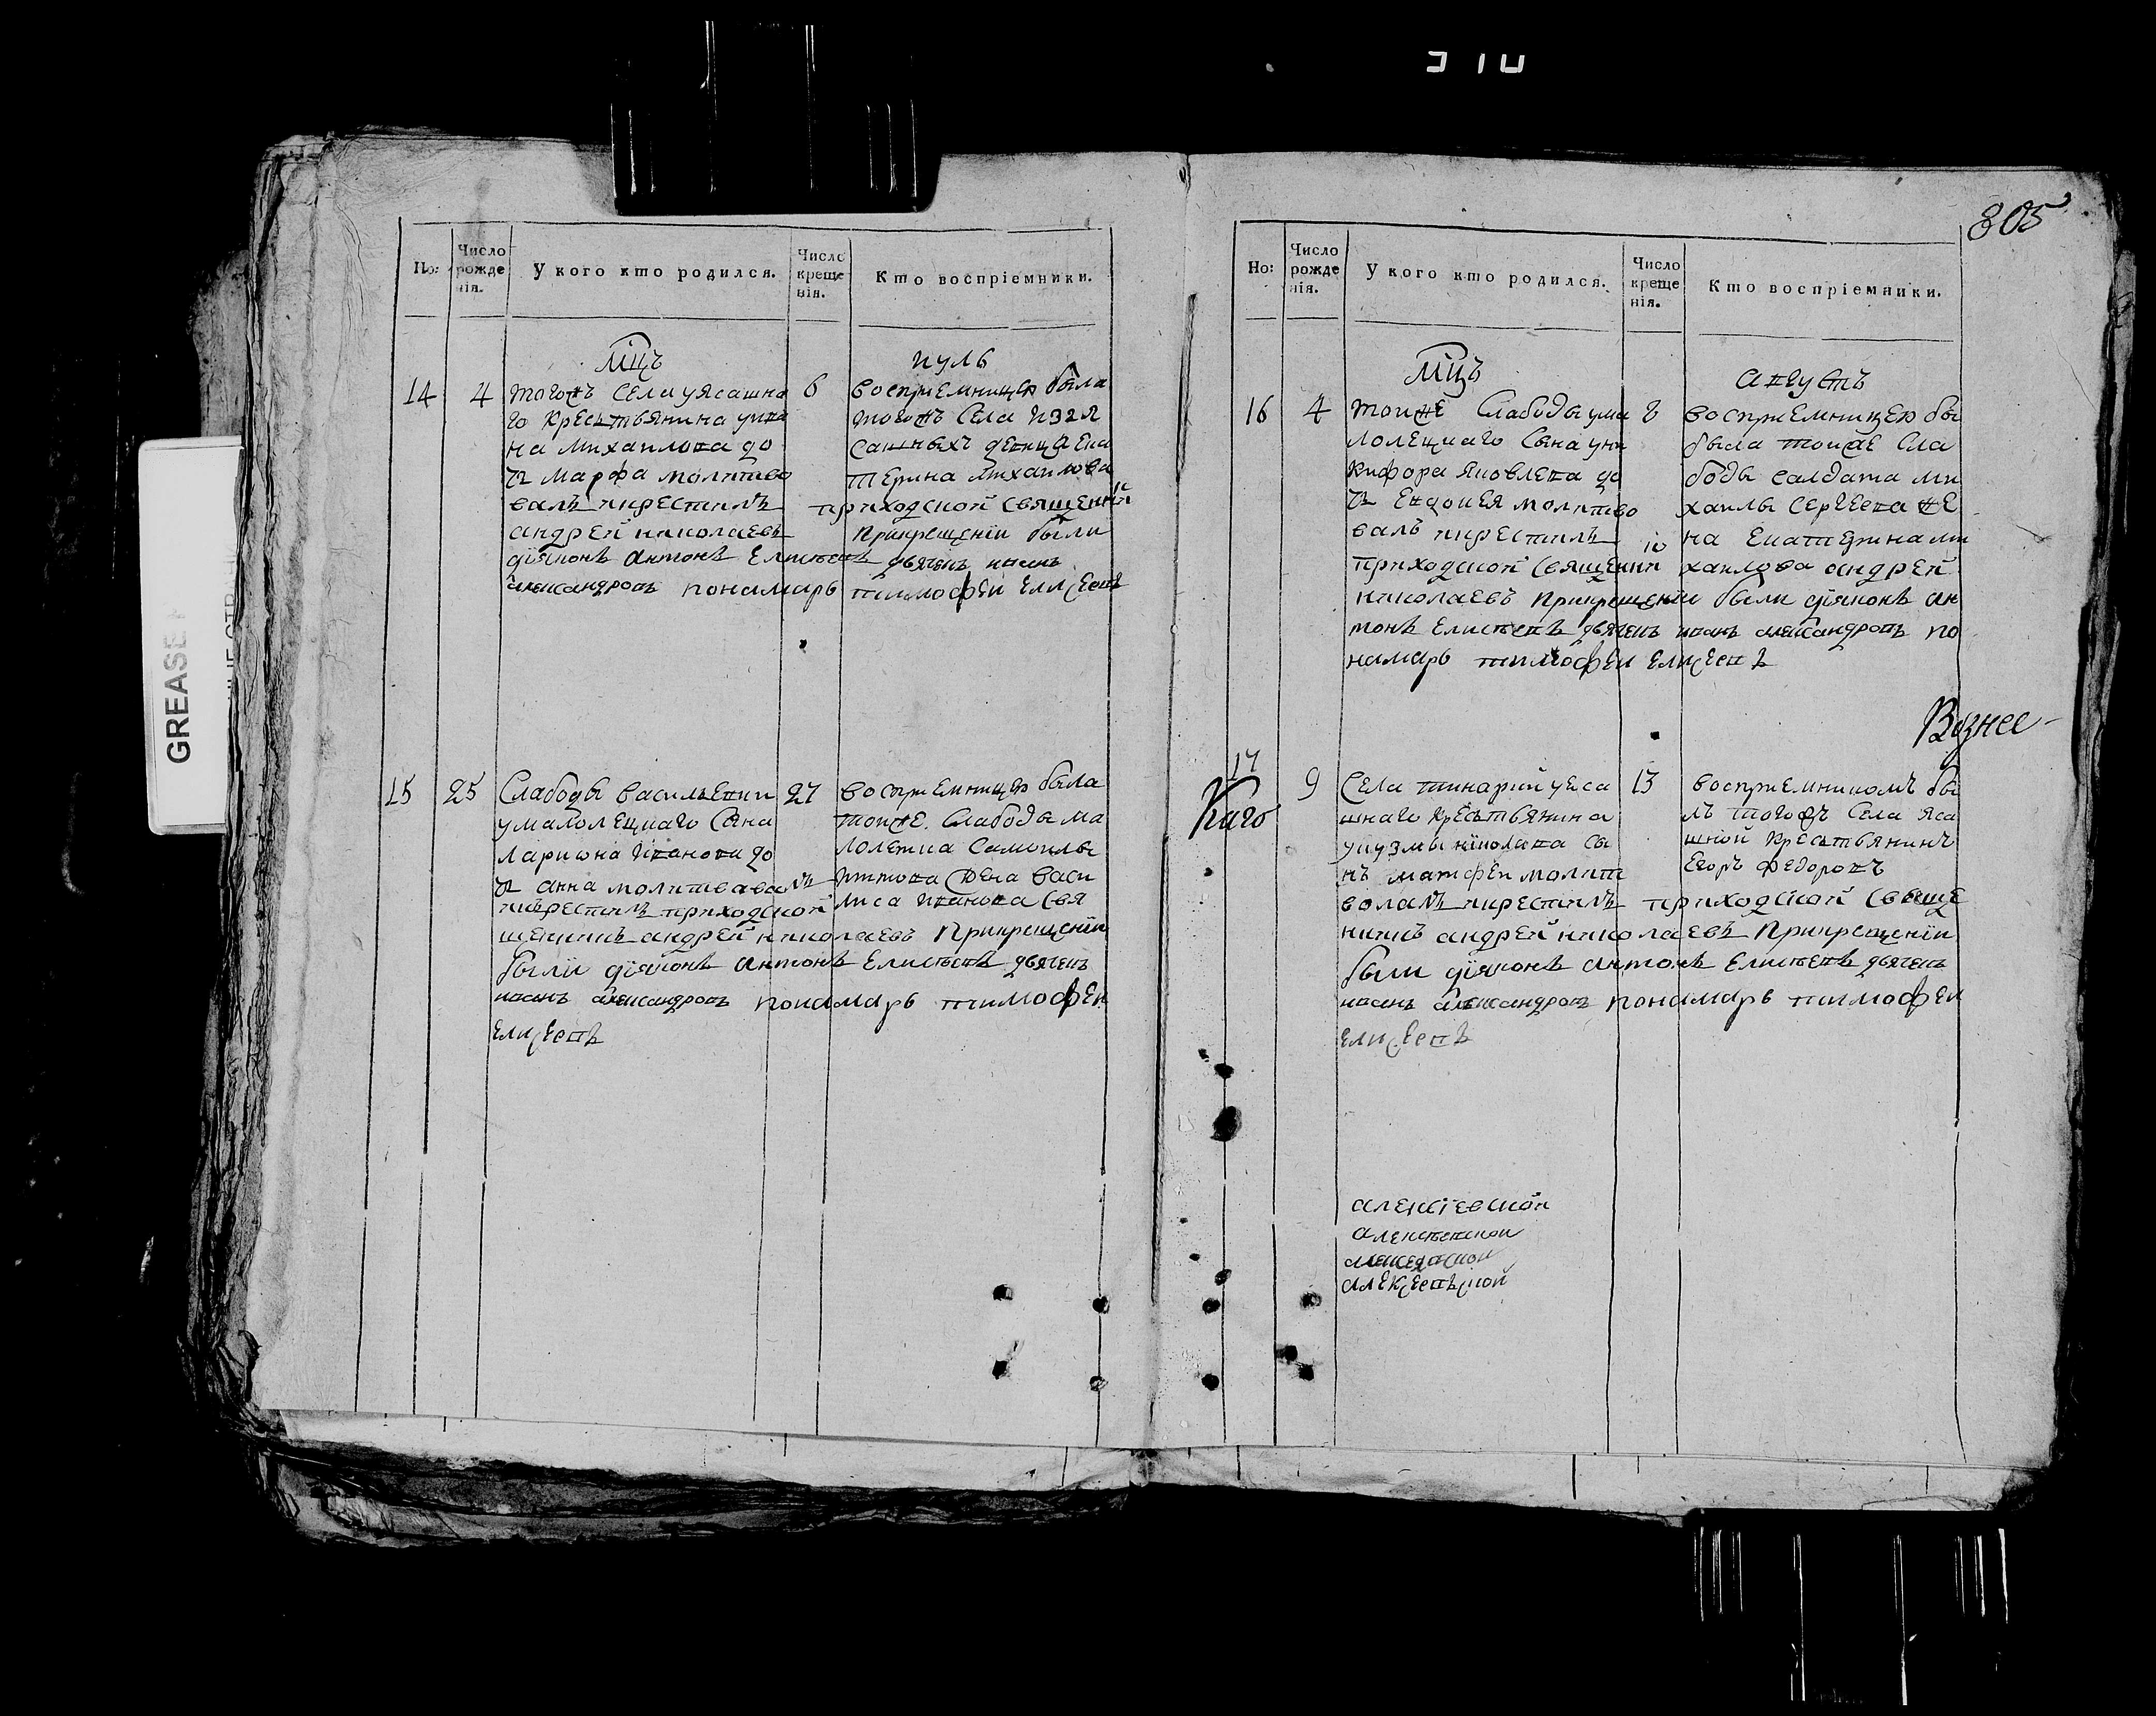 310
GREASE
805
Но:
Число рожде нія.
У кого кто родился.
Число креще нія.
Кто воспріемники.
мцъ
июль
14
4
тогожъ села уясашна
го крестьянина ива
на михаилова до
чь марфа молитво
валъ икрестилъ
андрей николаевъ
діяконъ антонъ Елисѣевъ
александровъ пономарь
6
восприемницею была
тогожъ села изъя
сашныхъ девица ека
терина михаилова
приходской священий
прикрещеніи были
дьячекъ иванъ
тимофеи елисеевъ
15
25
Слабоды василевки
умалолецкаго сына
лариона иванова до
чь анна молитвавалъ
икрестилъ приходской
щенникъ андрей николаевъ прикрещеніи
были діяконъ антонъ Елисѣевъ дьячекъ
иванъ александровъ понамарь тимофеи
елисеевъ
27
восприемницею была
тойже слабоды ма
лолетка самоилы
титова жена васи
лиса иванова свя
Но:
Число рожде нія.
У кого кто родился.
Число креще нія.
Кто воспріемники.
мцъ
августъ
16
4
тойже Слабоды ума
лолецкаго сына уни
кифора яковлева до
чь Евдокея молитво
валъ икрестилъ
приходской священни
николаевъ прикрещеніи были діяконъ ан
тонъ елисѣевъ дьячекъ иванъ александровъ по
намарь тимофеи елисеевъ
8
восприемницею бы
была тойже сла
боды салдата ми
хаилы сергеева же
на екатерина ми
хаилова андрей
Вознее
17
Каго
9
Села тинарий уеса
шнаго крестьянина
укузмы николава сы
нъ матфеи молит
волалъ икрестилъ приходской свяще
никъ андрей николаевъ прикрещеніи
были діяконъ антонъ елисѣевъ дьячекъ
иванъ александровъ понамарь тимофеи
елисеевъ
13
восприемникомъ бы
лъ тогожъ села яса
шной крестьянинъ
егоръ федоровъ
алексіевской
алексѣевской
алексеевской